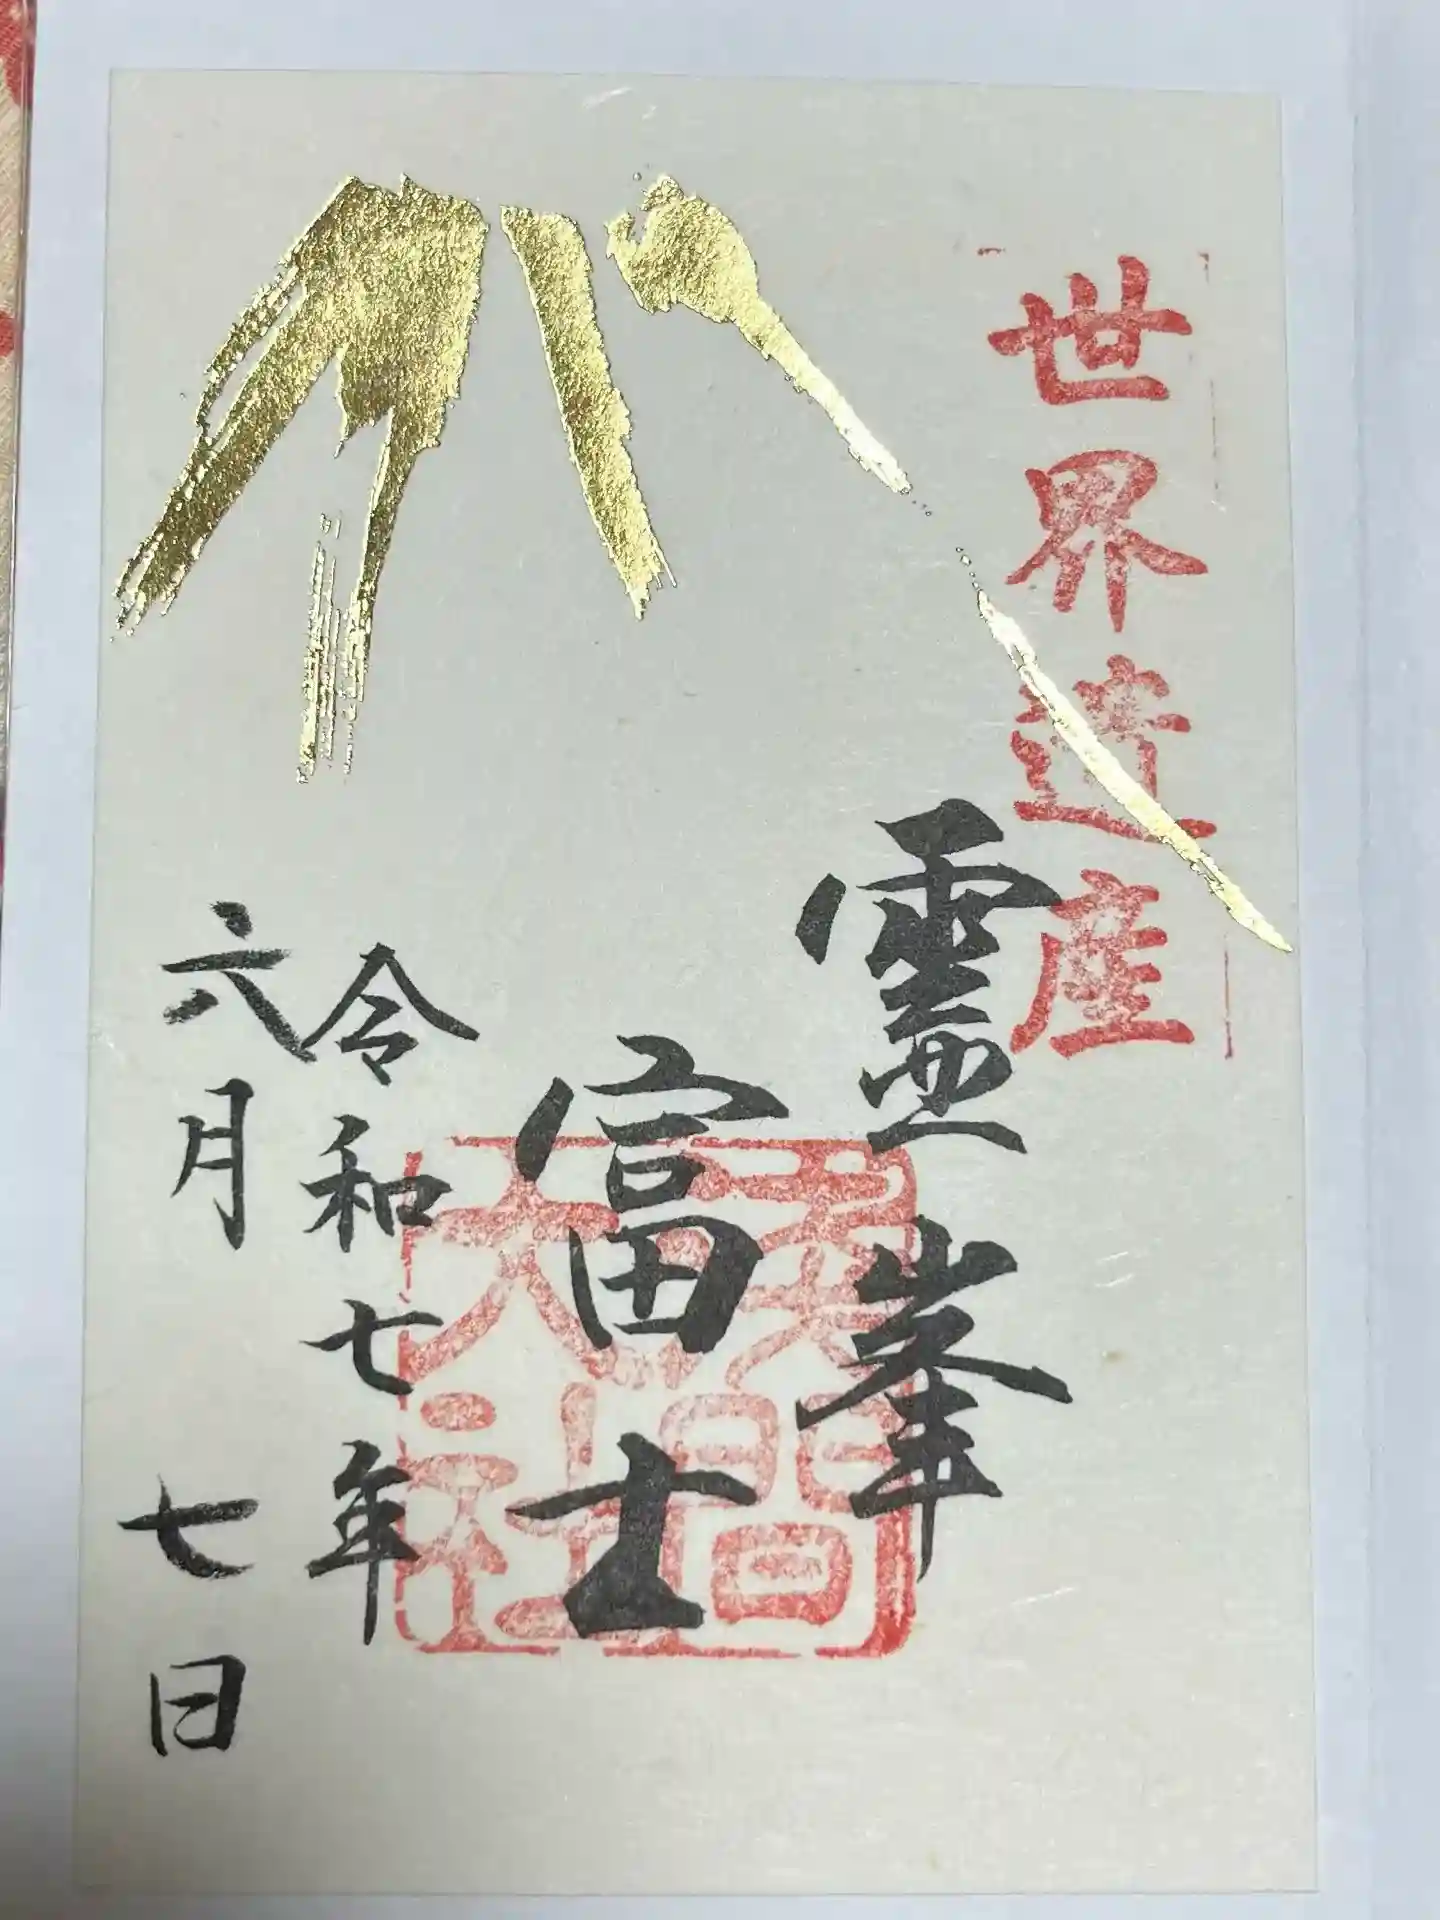 世界遺産
霊峯
富士
浅間
大社
令和七年
六月 七日